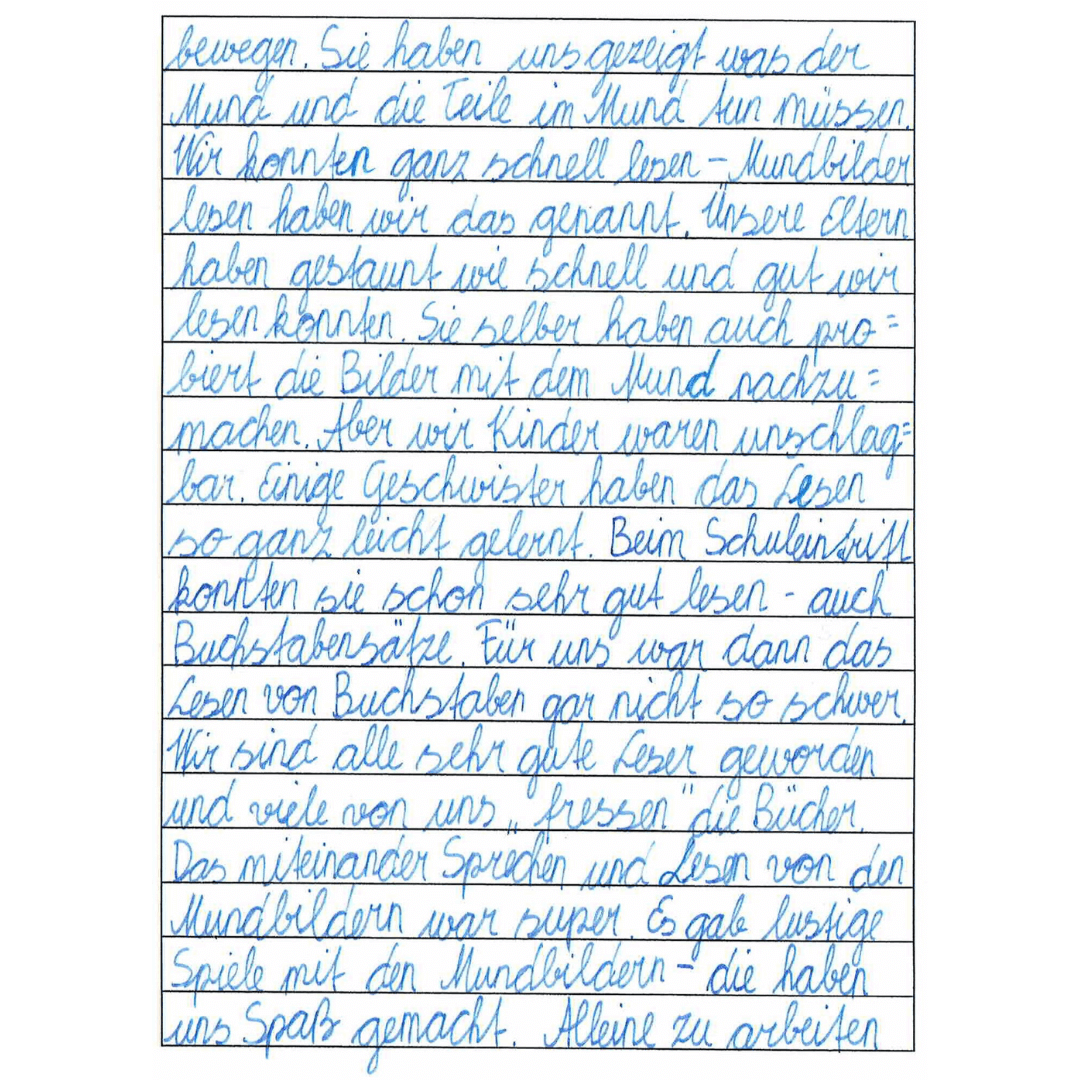 bewegen. Sie haben uns gezeigt was der
Mund und die Teile im Mund tun müssen.
Wir konnten ganz schnell lesen - Mundbilder
lesen haben wir das genannt. Unsere Eltern
haben gestaunt wie schnell und gut wir
lesen konnten. Sie selber haben auch pro=
biert die Bilder mit dem Mund nachzu=
machen. Aber wir Kinder waren unschlag=
bar. Einige Geschwister haben das Lesen
so ganz leicht gelernt. Beim Schuleintritt
konnten sie schon sehr gut lesen - auch
Buchstabensätze. Für uns war dann das
Lesen von Buchstaben gar nicht so schwer.
Wir sind alle sehr gute Leser geworden
und viele von uns „fressen" die Bücher.
Das miteinander Sprechen und Lesen von den
Mundbildern war super. Es gab lustige
Spiele mit den Mundbildern - die haben
uns Spaß gemacht. Alleine zu arbeiten